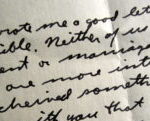 wrote me a good let
ible. Neither of us
ent or marriage
are more int
cherived someth
ith you that